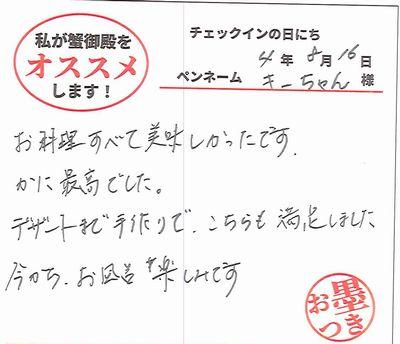 私が蟹御殿を
オススメ
します！
チェックインの日にち
4年8月16日
ペンネーム きーちゃん 様
お料理すべて美味しかったです.
かに最高でした。
デザートまで手作りで、こちらも満足しました
今から、お風呂が楽しみです
お墨つき